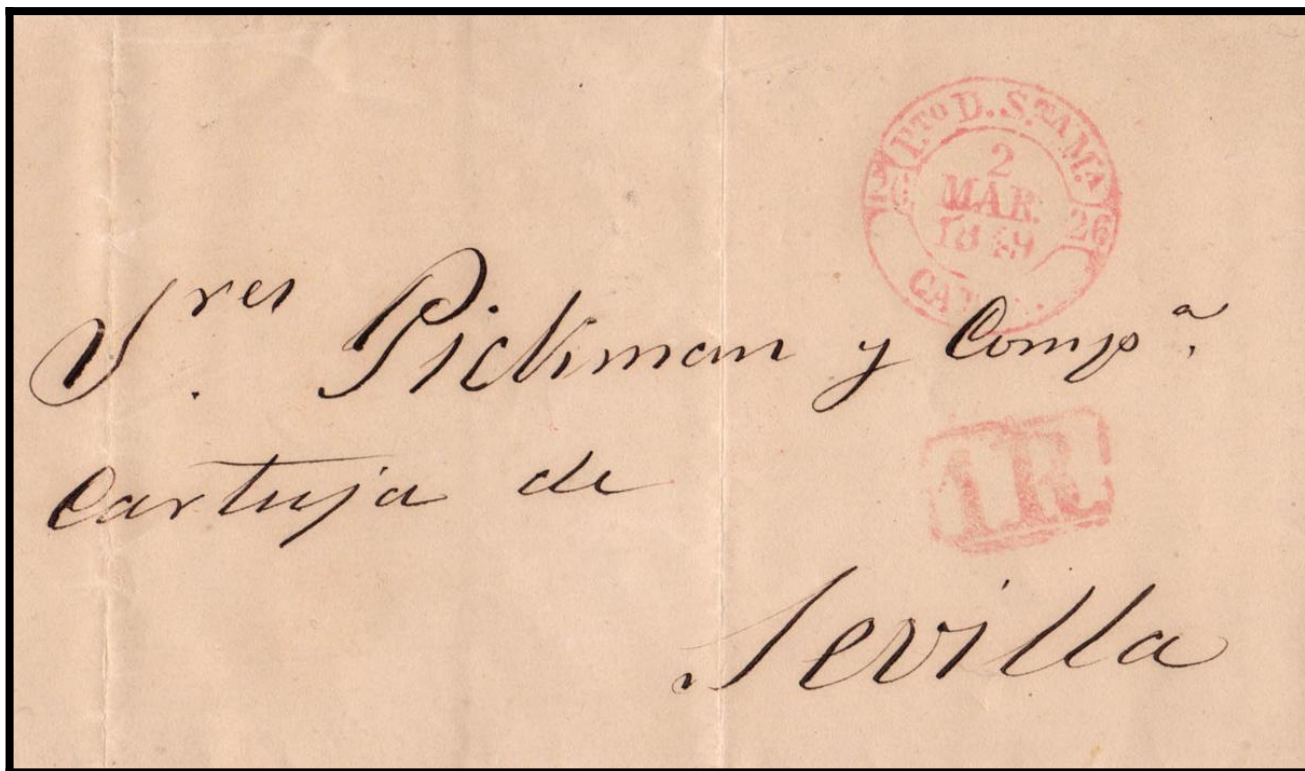 P.TO D. S.TA M.A
2
MAR.
1849
26
Sres Pickman y Compa.
Cartuja de
1R.
Sevilla